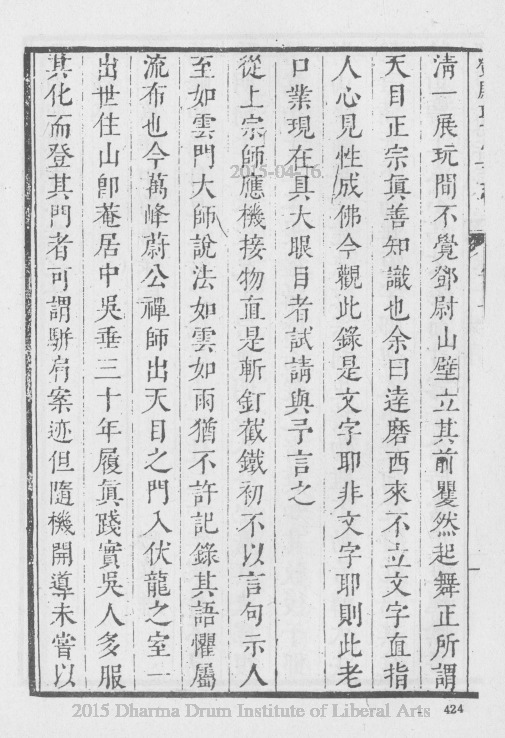 清一展玩間不覺鄧尉山壁立其前矍然起舞正所謂
天目正宗眞善知識也余曰達磨西來不立文字直指
人心見性成佛今觀此錄是文字耶非文字耶則此老
口業現在具大眼目者試請與予言之
從上宗師應機接物直是斬釘截鐵初不以言句示人
至如雲門大師說法如雲如雨猶不許記錄其語懼屬
流布也今萬峰蔚公禪師出天目之門入伏龍之室一
出世住山卽菴居中吳垂三十年履眞踐實吳人多服
其化而登其門者可謂駢肩案迹但隨機開導未嘗以
2015-04-16
2015 Dharma Drum Institute of Liberal Arts
424